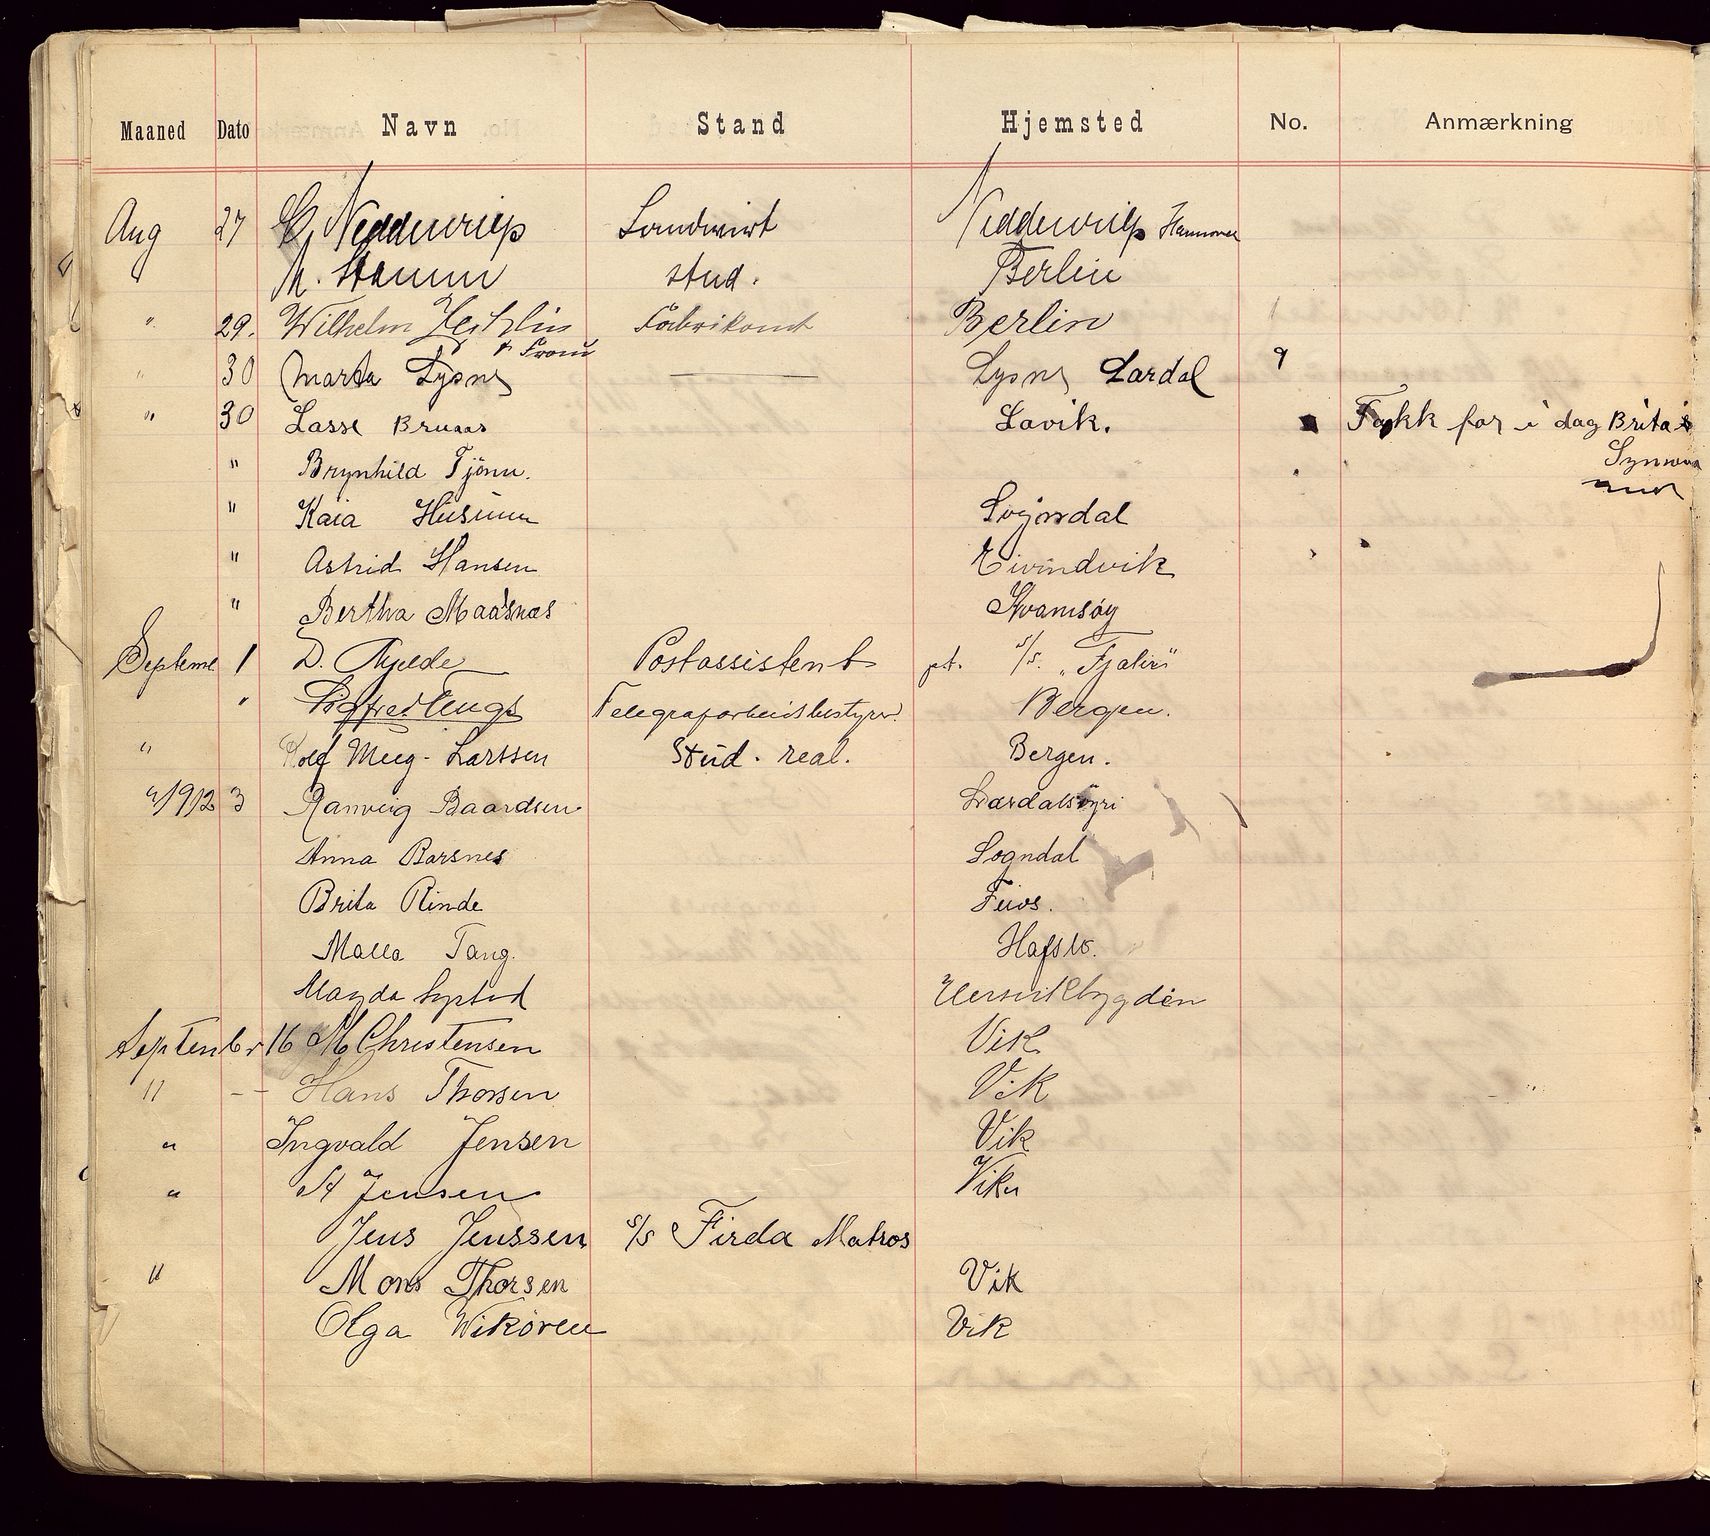 Maaned Dato Navn Stand Hjemsted No. Anmærkning
Aug 27 Nedderwriep Landwirt Hannover
M. Stamm stud. Berlin
" 29. Wilhelm Fabrikant Berlin 1
+ Frau
" 30 Marta Lysne Lysne Lærdal 9
" 30 Lasse Bruaas Lavik. Takk for i dag Brita
" Brynhild Tjönn. "
" Kaia Husum Sogndal
" Astrid Hansen Eivindvik
" Bertha Maasnæs Kvamsøy
Septem 1 D. Gjelde Postassistent pt. s/s. „Fjalir"
" Sigfred Telegrafarbeidsbestyrer. Bergen.
" Rolf Meeg-Larssen Stud. real. Bergen.
"/1912 3 Ranveig Baardsen Lærdalsøyri
Anna Barsnes Sogndal
Brita Rinde Feios.
Malla Tang. Hafslo.
Magda
Septenbr 16 M Christensen Vik
" -- Hans Thorsen Vik
" Ingvald Jensen Vik
" A Jensen Vik
Jens Jenssen s/s Firda Matros
" Mons Thorsen Vik
Olga Wikören Vik